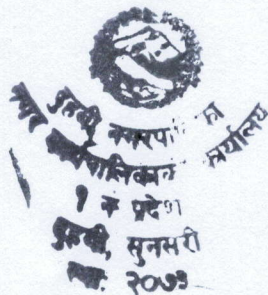 दुहवी, नगरपालिका
नगर कार्यपालिकाको कार्यालय
१ नं प्रदेश
दुहवी, सुनसरी
स्था. २०७३